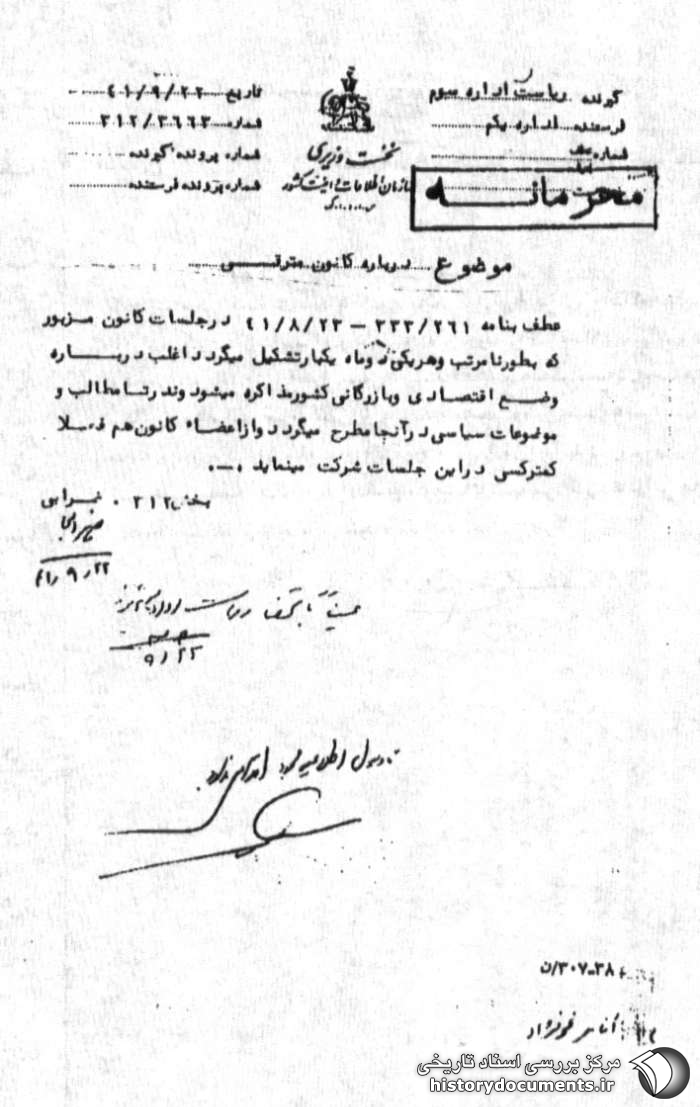 گیرنده ریاست اداره سوم
فرستنده اداره یکم
شماره
محرمانه
نخست وزیری
سازمان اطلاعات و امنیت کشور
س.ا.و.ا.ک
تاریخ ۴۱/۹/۲۲
شماره ۳۱۲/۳۶۶۳
شماره پرونده گیرنده
شماره پرونده فرستنده
موضوع درباره کانون مترقی
عطف بنامه ۲۳۳/۲۶۱ – ۴۱/۸/۲۳ درجلسات کانون مزبور
که بطورنامرتب وهریکی دوماه یکبارتشکیل میگردد اغلب درباره
وضع اقتصادی وبازرگانی کشورمذاکره میشود وندرتا مطالب و
موضوعات سیاسی درآنجامطرح میگردد وازاعضاء کانون هم فعلا
کمترکسی دراین جلسات شرکت مینماید .
بخش ۳۱۲
۴۱/۹/۲۲
۹/۲۲
۳۰۷-۳۸/ن
مرکز بررسی اسناد تاریخی
historydocuments.ir